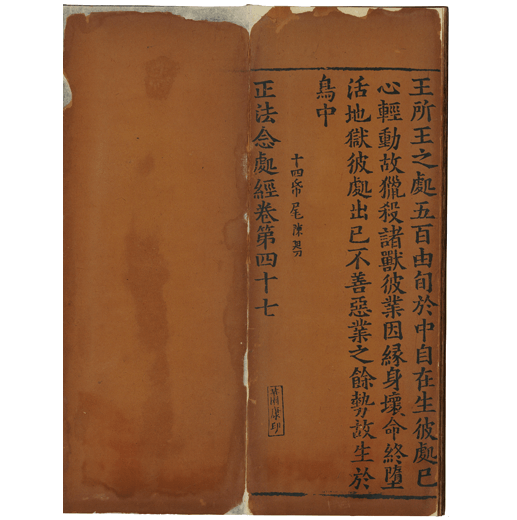 王所王之處五百由旬於中自在生彼處已
心輕動故獵殺諸獸彼業因緣身壞命終墮
活地獄彼處出已不善惡業之餘勢故生於
鳥中
十四帋尾陳
正法念處經卷第四十七
康印